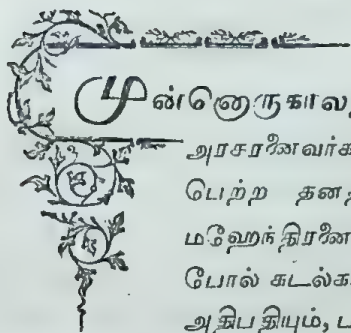 முன்னொருகால
அரசரனைவர்க
பெற்ற தன
மஹேந்திரனை
போல் கடல்க
அதிபதியும், ப